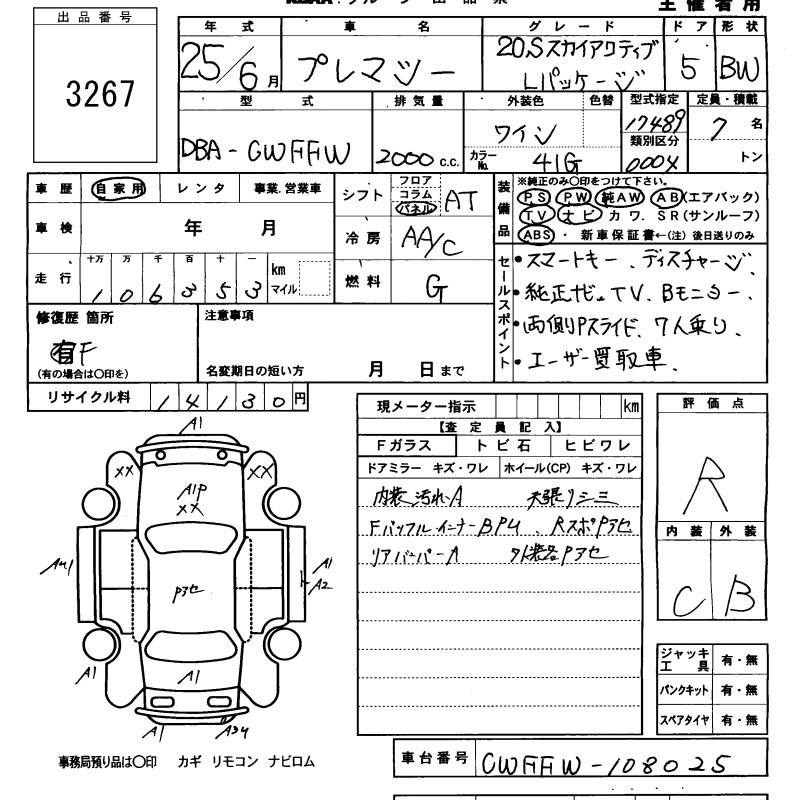 出品番号
3267
主催者用
年式 車名 グレード ドア 形状
25/6月 プレマシー 20Sスカイアクティブ Lパッケージ 5 BW
型式 排気量 外装色 色替 型式指定 定員・積載
DBA-CWFFW 2000c.c. ワイン カラーNo. 41G 17489 類別区分 000X 7名 トン
車歴 自家用 レンタ 事業.営業車
車検 年 月
走行 十万 万 千 百 十 一
106353 km マイル
シフト フロア コラム パネル AT
冷房 AA/C
燃料 G
装備品
※純正のみ〇印をつけて下さい。
PS PW 純AW AB(エアバック)
TV ナビ カワ. SR(サンルーフ)
ABS ・ 新車保証書←(注) 後日送りのみ
セールスポイント
・スマートキー、ディスチャージ、
・純正ナビ。TV、Bモニター、
・両側Pスライド、7人乗り、
・ユーザー買取車、
修復歴 箇所
有F
(有の場合は〇印を)
注意事項
名変期日の短い方 月 日まで
リサイクル料 14130円
現メーター指示 km
【査定員記入】
Fガラス トビ石 ヒビワレ
ドアミラー キズ・ワレ ホイール(CP) キズ・ワレ
内装汚れA 天張りシミ
Fバッフル インナーBPU、RスポPアセ
リアバンパーA 外装各Pアセ
評価点
R
内装 外装
C B
A1
XX XX
A1P
XX
Pアセ
A1
A2
A1
A1
A1
ジャッキ工具 有・無
パンクキット 有・無
スペアタイヤ 有・無
事務局預り品は〇印 カギ リモコン ナビロム
車台番号 CWFFW-108025